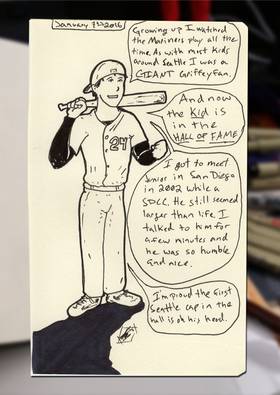 January 7th 2016
Growing up I watched
the Mariners play all the
time. As with most kids
around Seattle I was a
GIANT Griffey Fan.
And now
the Kid is
in the
HALL OF FAME
I got to meet
Junior in San Diego
in 2002 while @
SDCC. He still seemed
larger than life. I
talked to him for
a few minutes and
he was so humble
and nice.
I'm proud the first
Seattle cap in the
hall is on his head.
24